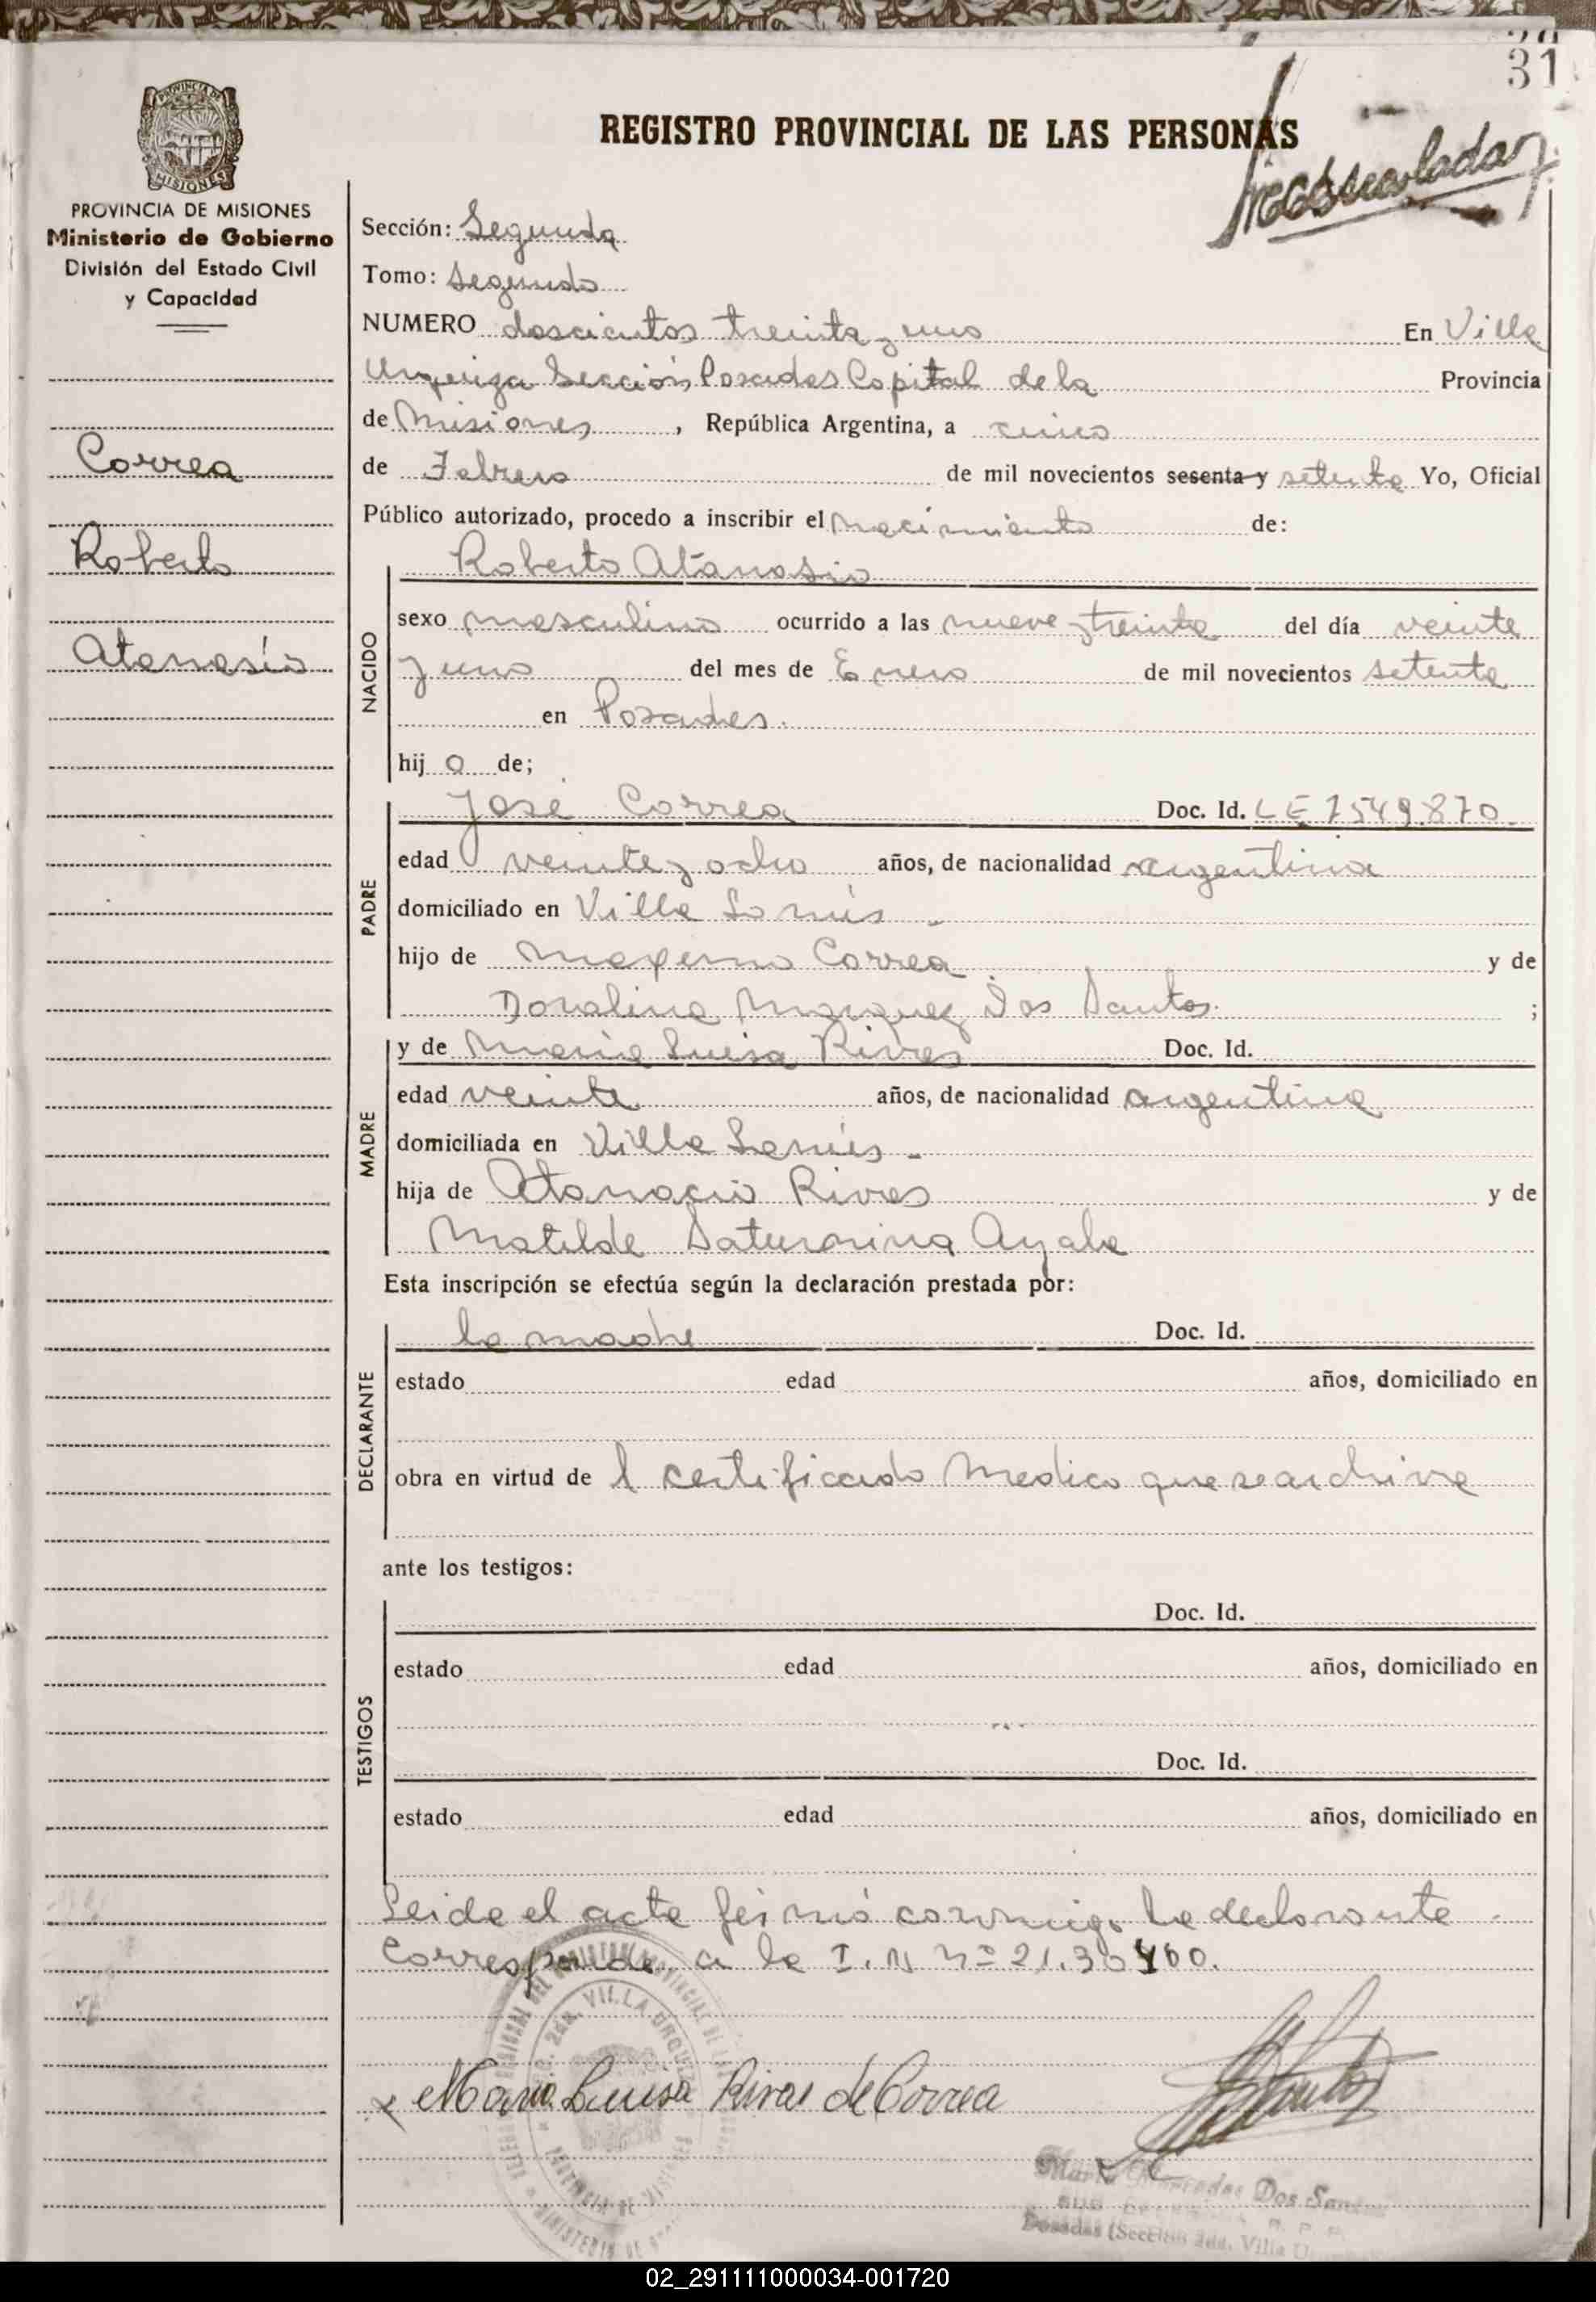 31
REGISTRO PROVINCIAL DE LAS PERSONAS
PROVINCIA DE MISIONES
Ministerio de Gobierno
División del Estado Civil
y Capacidad
Correa
Roberto
Atanasio
Sección: Segunda
Tomo: Segundo
NUMERO doscientos treinta y uno En Villa
Urquiza Sección Posadas Capital de la Provincia
de Misiones, República Argentina, a cinco
de Febrero de mil novecientos sesenta y setenta Yo, Oficial
Público autorizado, procedo a inscribir el nacimiento de:
NACIDO
Roberto Atanasio
sexo masculino ocurrido a las nueve y treinta del día veinte
y uno del mes de Enero de mil novecientos setenta
en Posadas.
hij o de;
PADRE
José Correa Doc. Id. LE 7549.870.
edad veinte y ocho años, de nacionalidad argentina
domiciliado en Villa Lanús -
hijo de Correa y de
Doralina Dos Santos ;
MADRE
y de Maria Luisa Rivas Doc. Id.
edad veinte años, de nacionalidad argentina
domiciliada en Villa Lanús -
hija de Atanacio Rivas y de
Matilde Saturnina Ayala
Esta inscripción se efectúa según la declaración prestada por:
DECLARANTE
la madre Doc. Id.
estado edad años, domiciliado en
obra en virtud de l certificado Medico que se archiva
ante los testigos:
TESTIGOS
Doc. Id.
estado edad años, domiciliado en
Doc. Id.
estado edad años, domiciliado en
Leida el acta firmó conmigo la declarante -
Corresponde a la I. N nº 21.30
Maria Luisa Rivas de Correa
Dos Santos
Posadas (Sección 2da. Villa
02_291111000034-001720